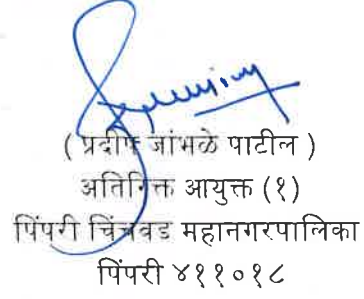 ( प्रदीप जांभळे पाटील )
अतिरिक्त आयुक्त (१)
पिंपरी चिंचवड महानगरपालिका
पिंपरी ४११०१८